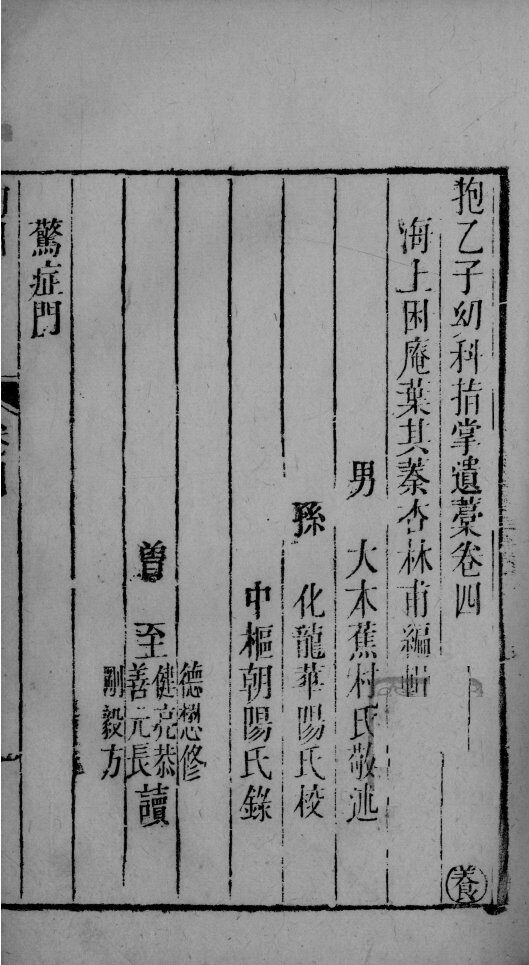 抱乙子幼科指掌遺藁卷四
養
海上困庵葉其蓁杏林甫編輯
男 大本蕉村氏敬述
孫 化龍華陽氏校
中樞朝陽氏錄
德懋修
曾 至 健亮恭 讀
善元長
剛毅方
驚症門